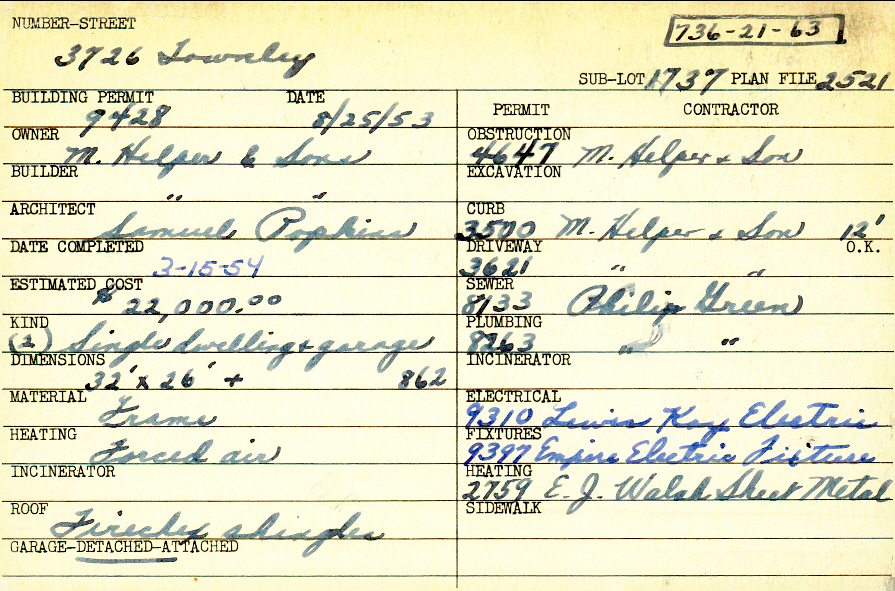 NUMBER-STREET
736-21-63
3726 Townley
SUB-LOT 1737 PLAN FILE 2521
BUILDING PERMIT DATE
9428 8/25/53
OWNER
M. Helper & Sons
BUILDER
" "
ARCHITECT
Samuel Popkins
DATE COMPLETED
3-15-54
ESTIMATED COST
$22,000.00
KIND
(1) Single dwelling + garage
DIMENSIONS
32' x 26' + 862
MATERIAL
Frame
HEATING
Forced air
INCINERATOR
ROOF
Firechex shingles
GARAGE-DETACHED-ATTACHED
PERMIT CONTRACTOR
OBSTRUCTION
4647 M. Helper & Son
EXCAVATION
CURB
3500 M. Helper & Son 12'
DRIVEWAY O.K.
3621 " "
SEWER
8133 Philip Green
PLUMBING
8263 " "
INCINERATOR
ELECTRICAL
9310 Lewis Kay Electric
FIXTURES
9397 Empire Electric Fixture
HEATING
2759 E. J. Walsh Sheet Metal
SIDEWALK